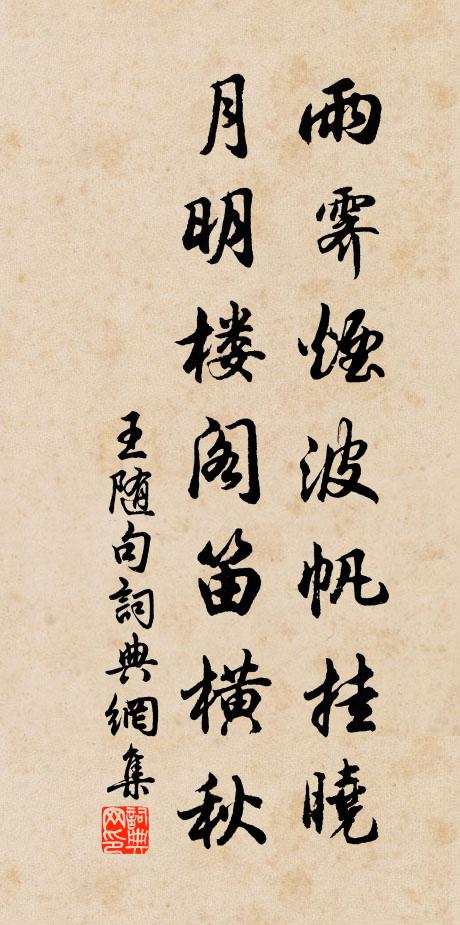 雨霁煙波帆挂曉
月明楼阁笛横秋
王随句詞典網集
詞典网印